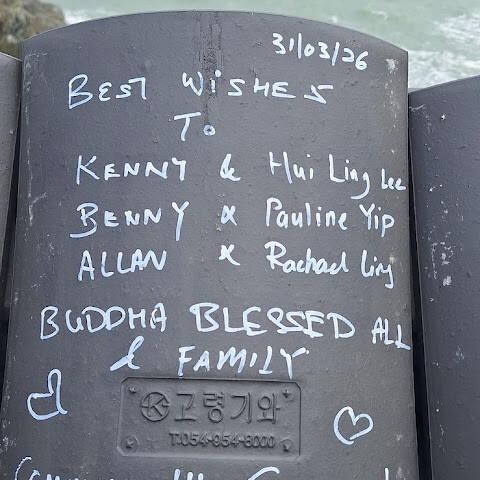 31/03/26
BEST WISHES
To
KENNY & Hui Ling Lee
BENNY & Pauline Yip
ALLAN & Rachael Ling
BUDDHA BLESSED ALL
& FAMILY
K 고령기와
T.054-954-8000